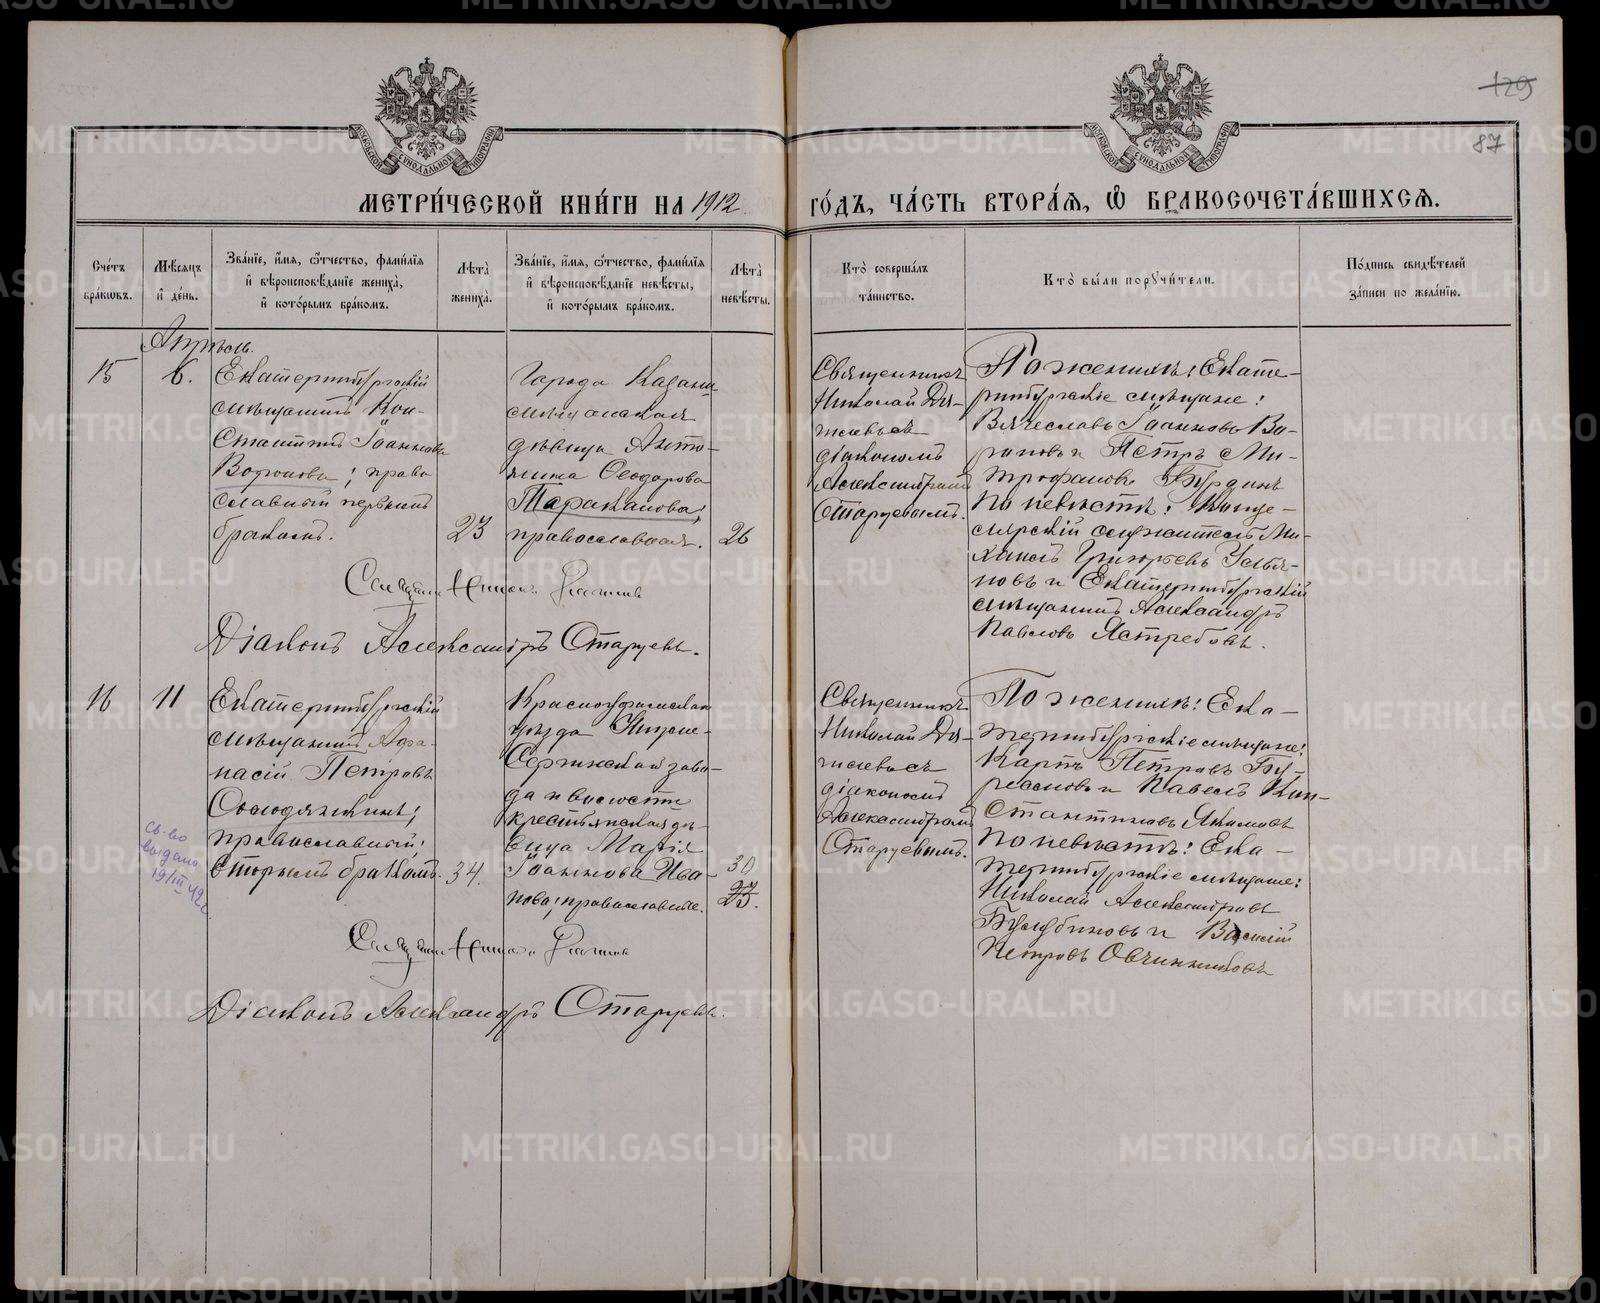 129
87
МЕТРИ́ЧЕСКОЙ КНИ́ГИ НА 1912
ГО́ДЪ, ЧА́СТЬ ВТОРА́Я, Ѡ БРАКОСОЧЕТА́ВШИХСЯ.
Сче́тъ бра́кωвъ.
Мѣ́сяцъ и де́нь.
Зва́нїе, и́мя, ѻ́тчество, фами́лїя
и҆ вѣроисповѣ́данїе жениха̀,
и҆ кото́рымъ бра́комъ.
Лѣта̀ жениха̀.
Зва́нїе, и́мя, ѻ́тчество, фами́лїя
и҆ вѣроисповѣ́данїе невѣ́сты,
и҆ кото́рымъ бра́комъ.
Лѣта̀ невѣ́сты.
Кто̀ соверша́лъ
та́инство.
Кто̀ бы́ли поручи́тели.
По́дпись свидѣ́телей
за́писи по жела́нїю.
Апрѣль.
15
6.
Екатеринбургскій
мѣщанинъ Кон-
стантинъ Іоанновъ
Вороновъ; право
славный первымъ
бракомъ.
23
Города Казани
мѣщанская
дѣвица Анто-
нина Ѳеодорова
Тараканова;
православная.
26
Священникъ
Николай
діакономъ
Александромъ
Старцевымъ.
По женихѣ: Екате-
ринбургскіе мѣщане:
Вячеславъ Іоанновъ Во-
роновъ и Петръ Ми-
трофановъ Бурдинъ
По невѣстѣ: Канце-
лярскій служитель Ми-
хаилъ Григорьевъ Улья-
новъ и Екатеринбургскій
мѣщанинъ Александръ
Павловъ Ястребовъ.
Діаконъ Александръ Старцевъ.
16
11
Екатеринбургскій
мѣщанинъ Афа-
насій Петровъ
Солодянкинъ;
православный;
вторымъ бракомъ.
34.
Св-во
выдано
19/III 42г.
Красноуфимскаго
уѣзда Нижне-
Сергинскаго заво-
да и волости
крестьянская дѣ-
вица Марія
Іоаннова Ива-
нова; православная.
30
23.
Священникъ
Николай
діакономъ
Александромъ
Старцевымъ.
По женихѣ: Ека-
теринбургскіе мѣщане:
Карпъ Петровъ
и Павелъ Кон-
стантиновъ Якимовъ
По невѣстѣ: Ека-
теринбургскіе мѣщане:
Николай Александровъ
Голубиновъ и Василій
Петровъ Овчинниковъ
Діаконъ Александръ Старцевъ.
METRIKI.GASO-URAL.RU